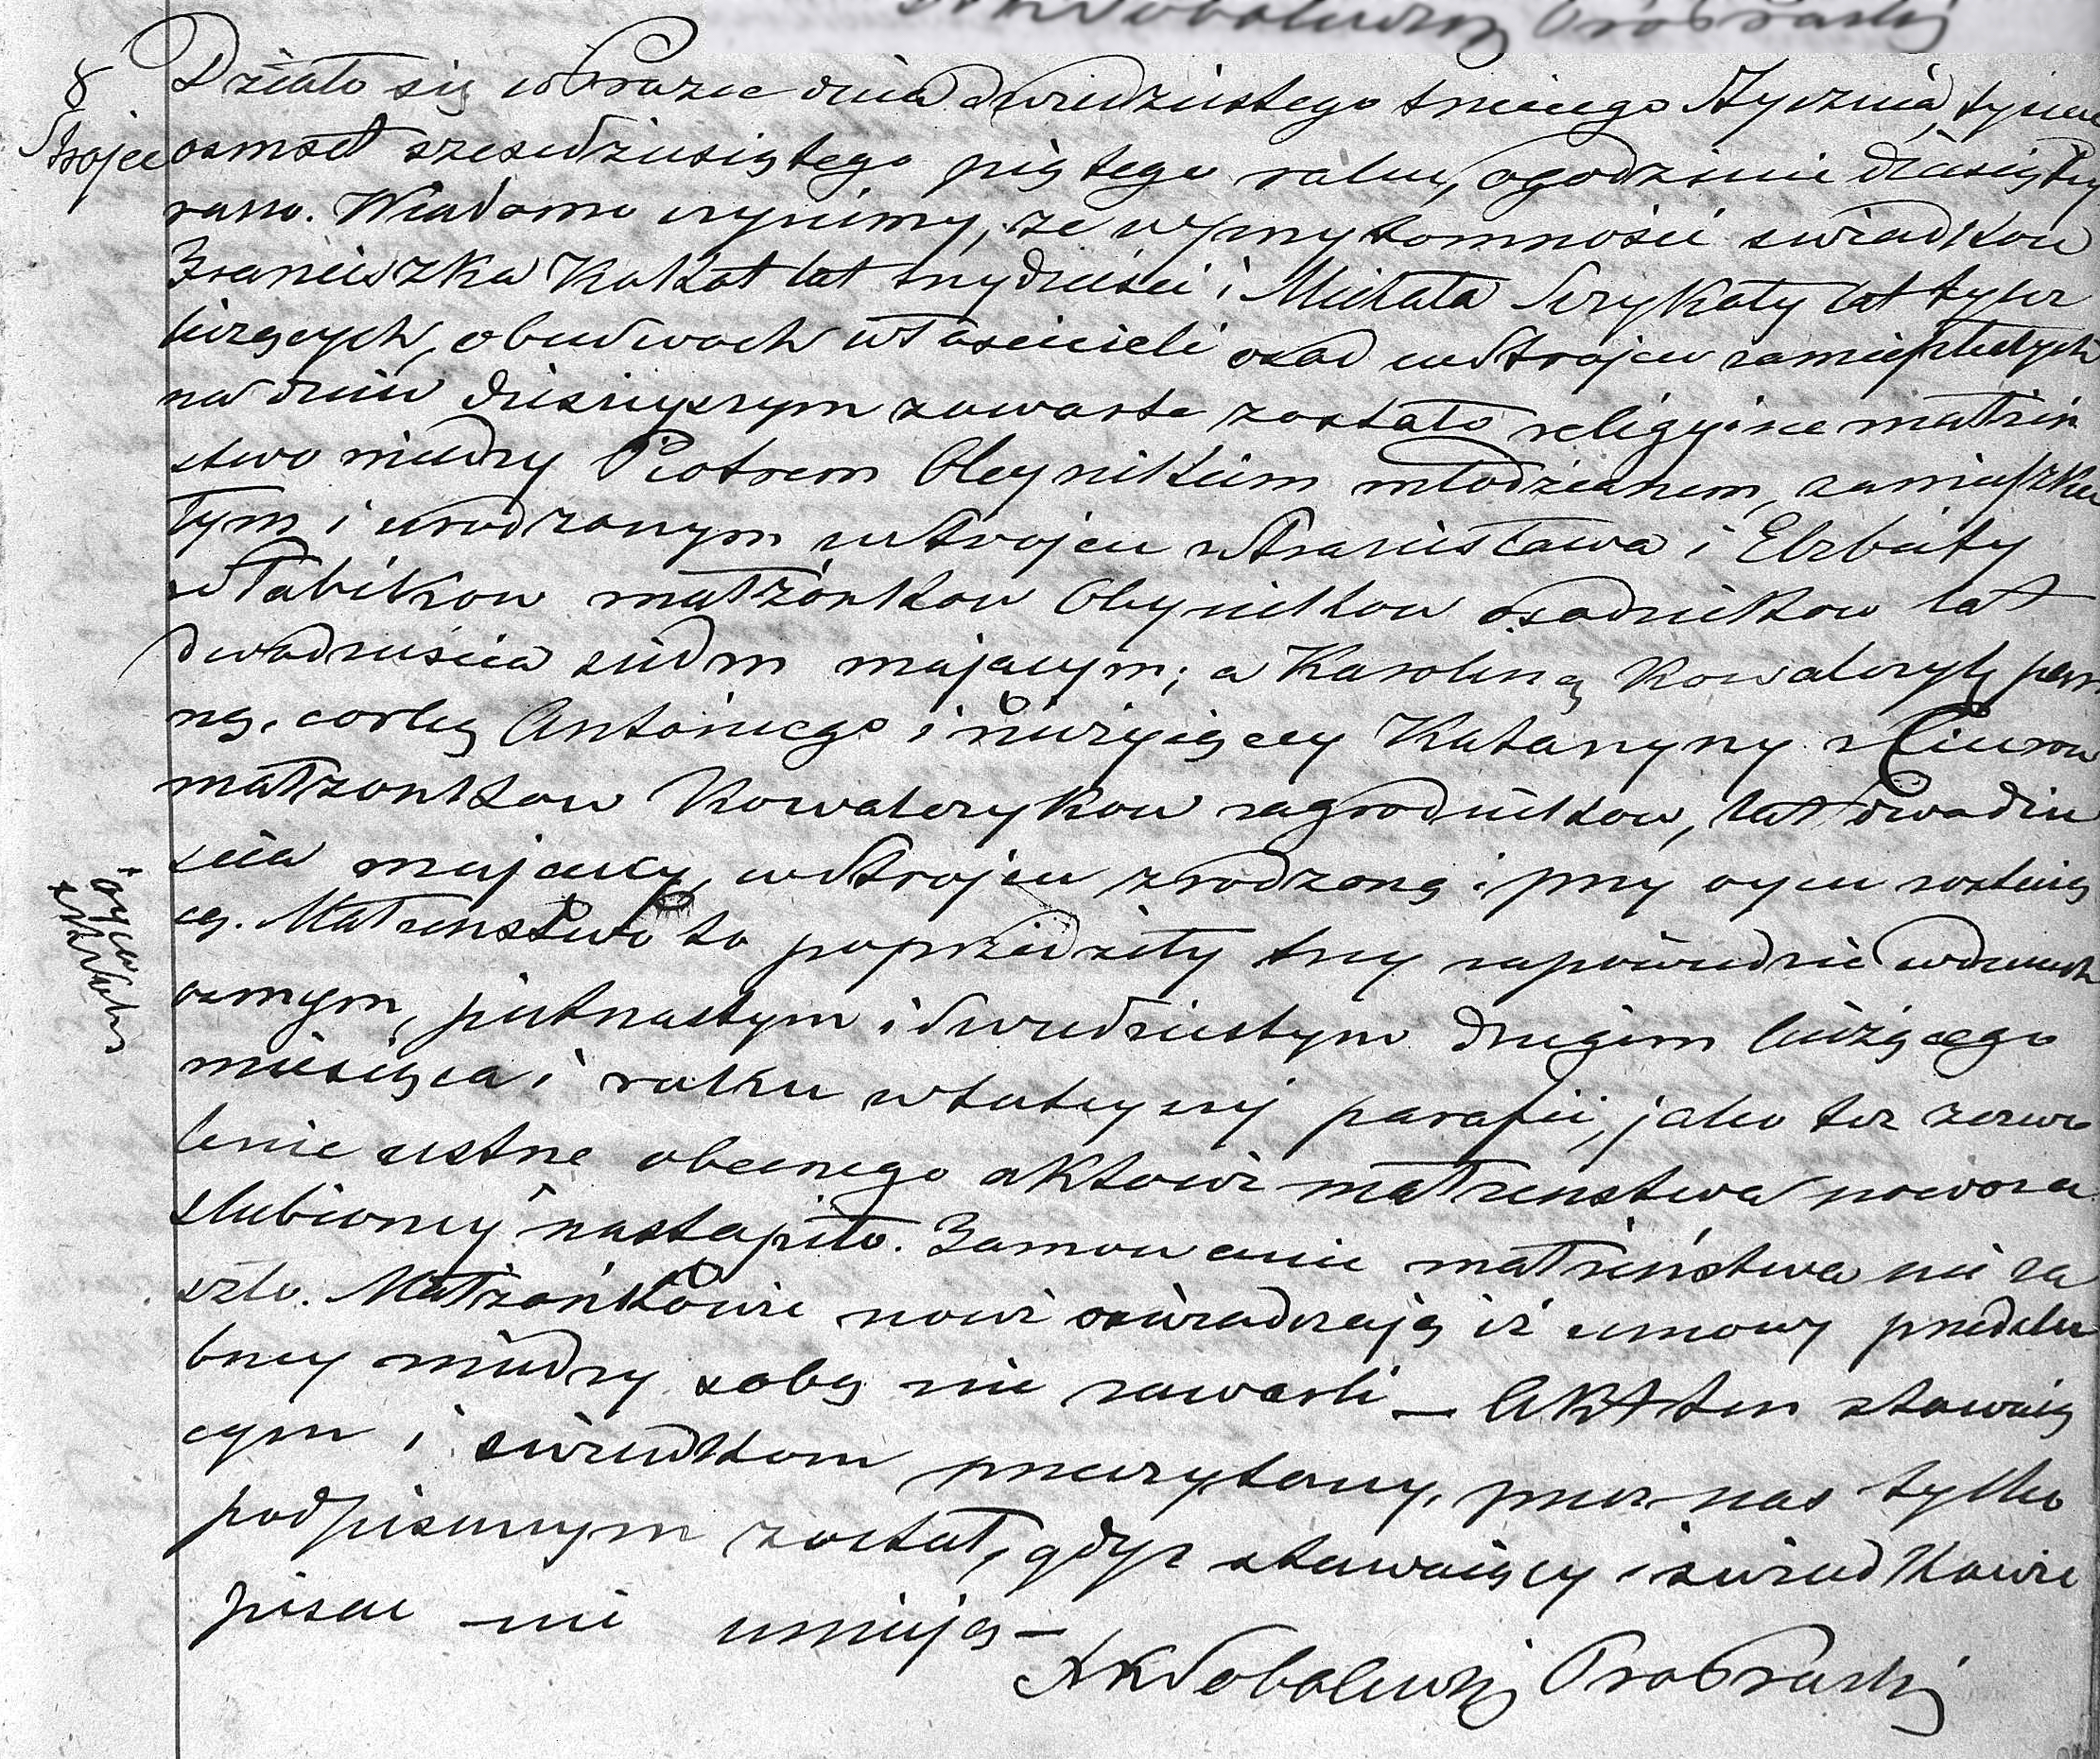 8
Strojec
Działo się w Prazce dnia dwudziestego trzeciego Stycznia, tysiąc
osmset sześćdziesiątego piątego roku, o godzinie dziesiątej
rano. Wiadomo czynimy, że w przytomności swiadkow
Franciszka Kokot lat trzydzieści i Michała Szrykaty lat tyleż
liczących, obudwoch właścicieli osad w Strojcu zamieszkałych
na dniu dzisiejszym zawarte zostało religijne małżeń
stwo między Piotrem Oleynikiem młodzianem, zamieszka
łym i urodzonym w Strojcu z Stanisława i Elżbiety
z Stabikow małżonkow Oleynikow osadnikow lat
dwadzieścia siedm mającym; a Karoliną Kowalczyk pan
ną, corką Antoniego i nieżyjącey Katarzyny z
małżonkow Kowalczykow zagrodnikow, lat dwadzie
ścia mającą, w Strojcu zrodzoną i przy oycu zostają
cą. Małżeństwo to poprzedziły trzy zapowiedzie w dniach
osmym, pietnastym i dwudziestym drugim bieżącego
miesiąca i roku w tuteyszej parafii, jako też zezwo
lenie ustne obecnego aktowi małżeństwa nowoza
slubioney nastąpiło. Tamowanie małżeństwa nie za
szło. Małżonkowie nowi oswiadczają iż umowy przedslu
bney między sobą nie zawarli — Akt ten stawaią
cym i swiadkom przeczytany, przez nas tylko
podpisanym został, gdyż stawaiący i swiadkowie
pisac nie umieją —